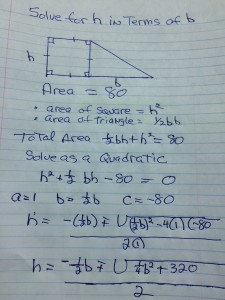 Solve for h in Terms of b
h
b
Area = 80
• area of square = h²
• area of Triangle = ½bh
Total Area ½bh + h² = 80
Solve as a Quadratic
h² + ½bh - 80 = 0
a=1 b=½b c=-80
h = -(½b) ∓ √(½b)² - 4(1)(-80
2(1)
h = -½b ∓ √¼b² + 320
2